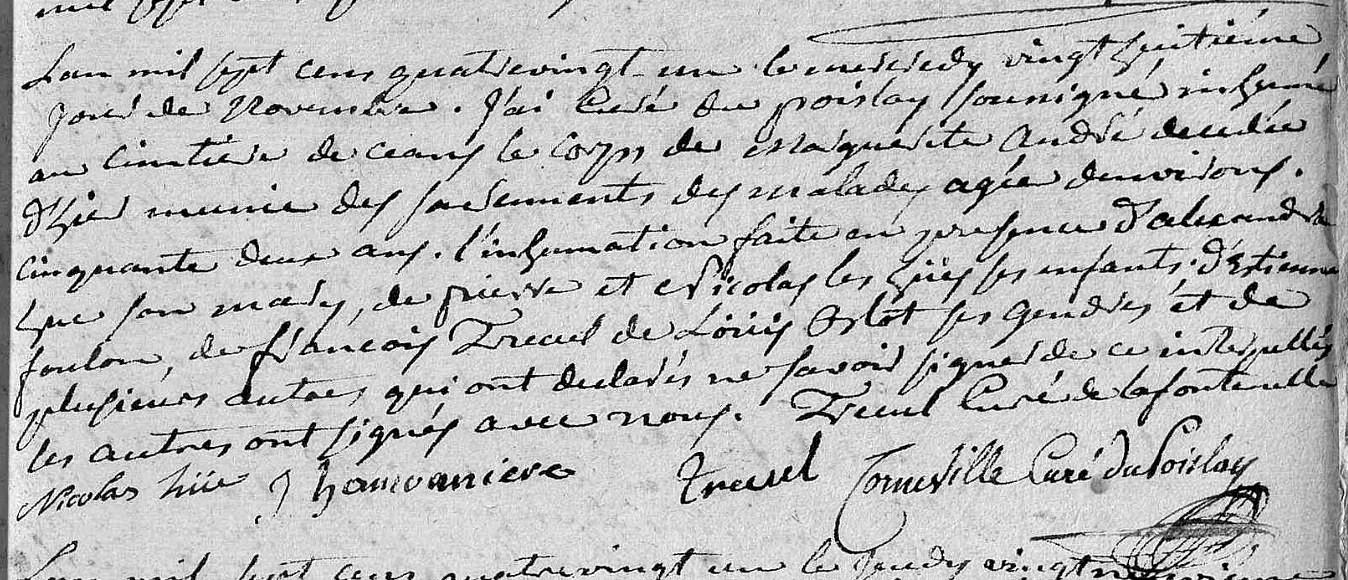 Lan mil sept cens quatrevingt un le mercredy vingt huitième
jour de Novembre. J'ai Curé du poislay soussigné inhumé
au cimetiere de ceans le corps de Marguerite André decedée
d'hier munie des sacrements des malades agée denvirons
cinquante deux ans. l'inhumation faite en presence d'alexandre
hue son mary, de pierre et Nicolas les hües ses enfants d'Estienne
foulon, de françois Treuil de Loüis Oslot ses gendres et de
plusieurs autres qui ont declarés ne savoir signer de ce interpellés
les autres ont signés avec nous. Treuil Curé de lafontenelle
Nicolas hüe J treuil Corneville Curé du Poislay
Lan mil sept cens quatrevingt un le Jeudy vingt